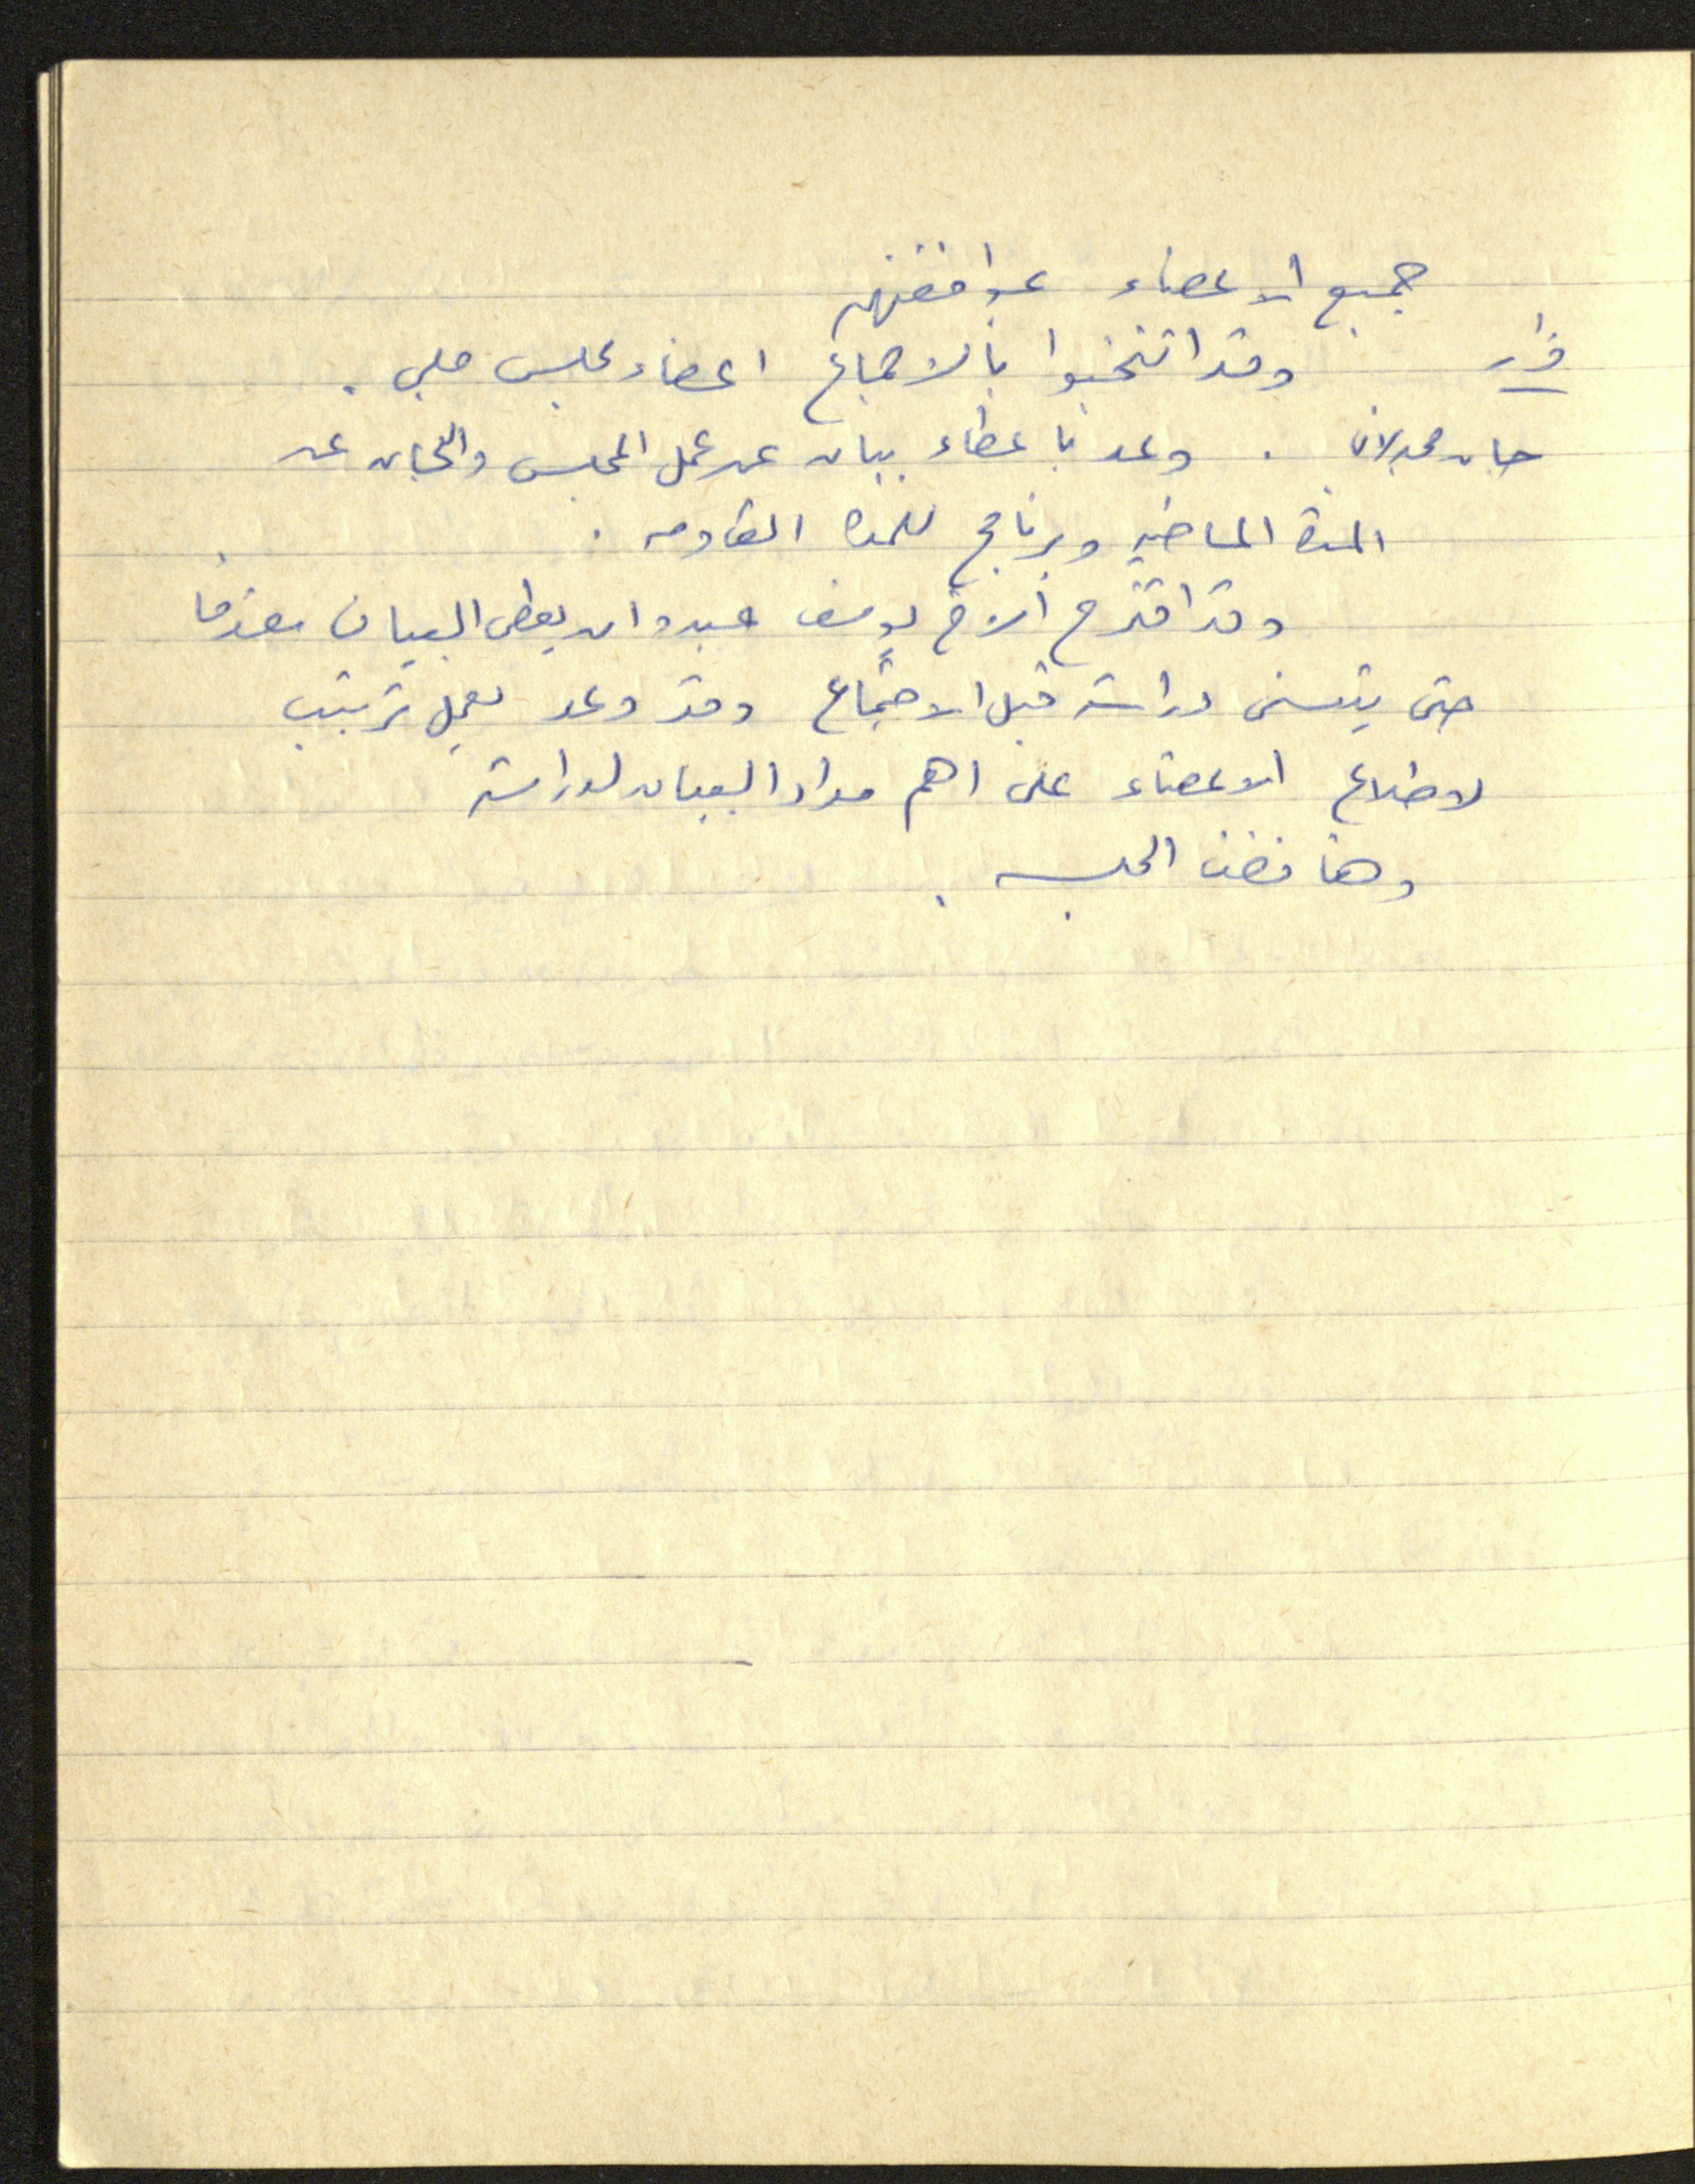 جميع الاعضاء بموافقتهم
قرار وقد انتخبوا بالاجماع اعضاء مجلس ملي .
جان مجدلاني . وعد باعطاء بيان عن عمل المجلس واللجان عن
المدة الماضيه وبرنامج للمدة القادمه .
وقد اقترح الاخ يوسف عبدو ان يعطى البيان مقدما
حتى يتسنى دراسته قبل الاجتماع وقد وعد بعمل ترتيب
لاطلاع الاعضاء على اهم مواد البيان لدراسته
وهنا فضت الجلسه .